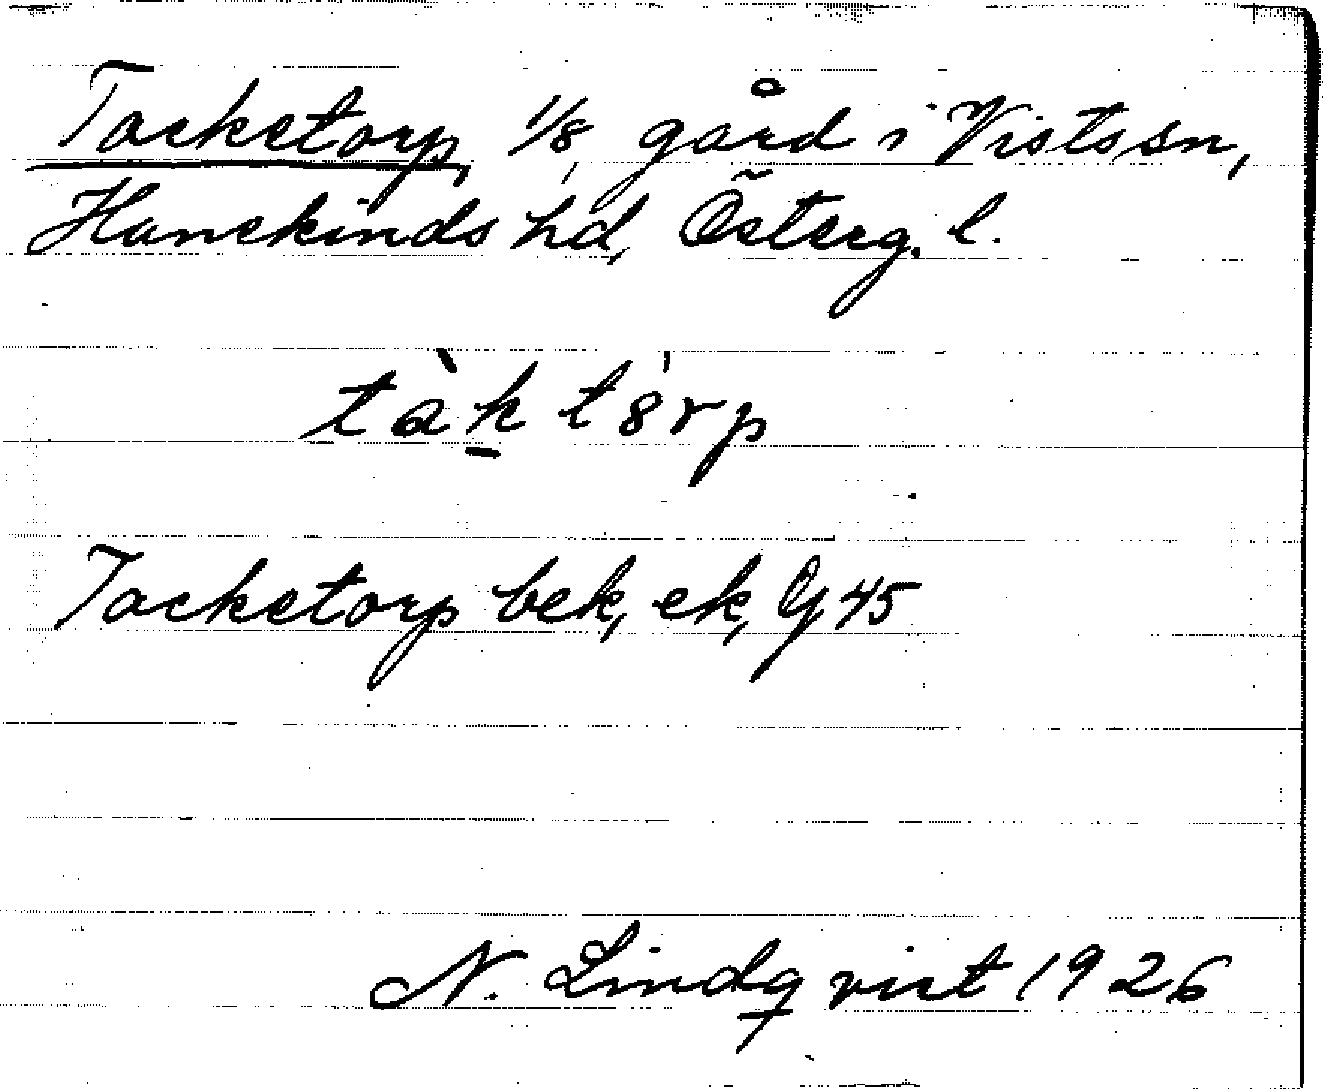 Tacketorp, 1/8, gård i Vists sn,
Hanekinds hd, Österg. l.
tàk tȣ́rp
Tacketorp bek, ek, Gj 45
N. Lindqvist 1926